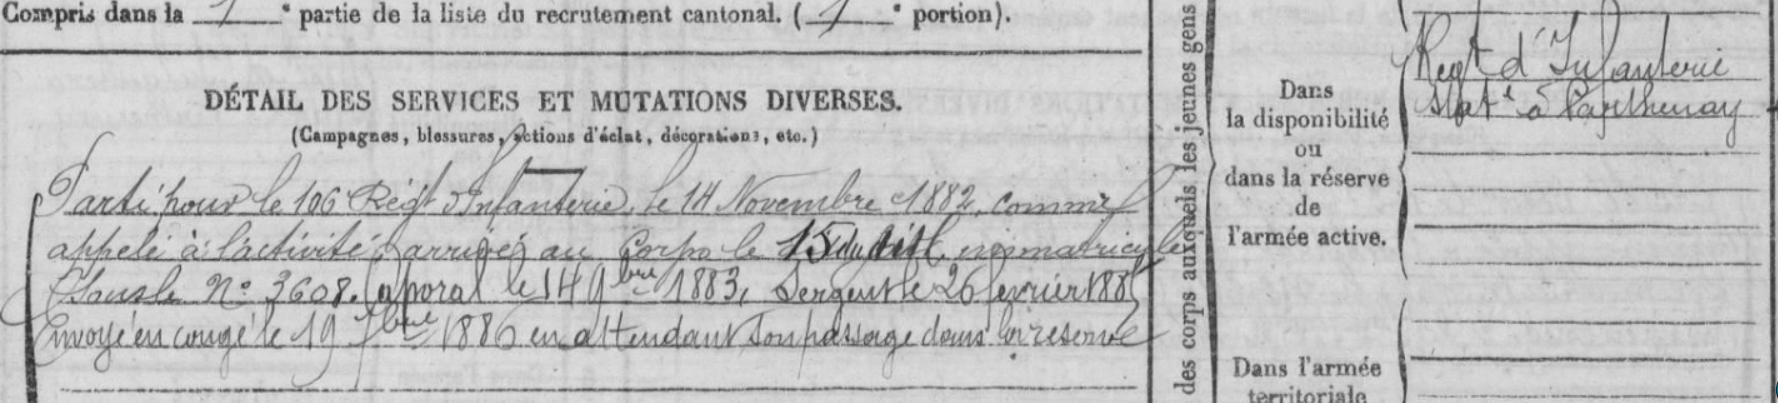 Compris dans la 1 e partie de la liste du recrutement cantonal. ( 1 e portion).
DÉTAIL DES SERVICES ET MUTATIONS DIVERSES.
(Campagnes, blessures, actions d'éclat, décorations, etc.)
Parti pour le 106 Régt d'Infanterie, le 14 Novembre 1882, comme
appelé à l'activité, arrivé au Corps le 15 dudit, immatriculé
sous le No 3608. Caporal le 14 9bre 1883, Sergent le 26 février 1885
Envoyé en congé le 19 7bre 1886 en attendant son passage dans la réserve
des corps auxquels les jeunes gens
Dans
la disponibilité
ou
dans la réserve
de
l'armée active.
Régt d'Infanterie
staté à Parthenay
Dans l'armée
territoriale